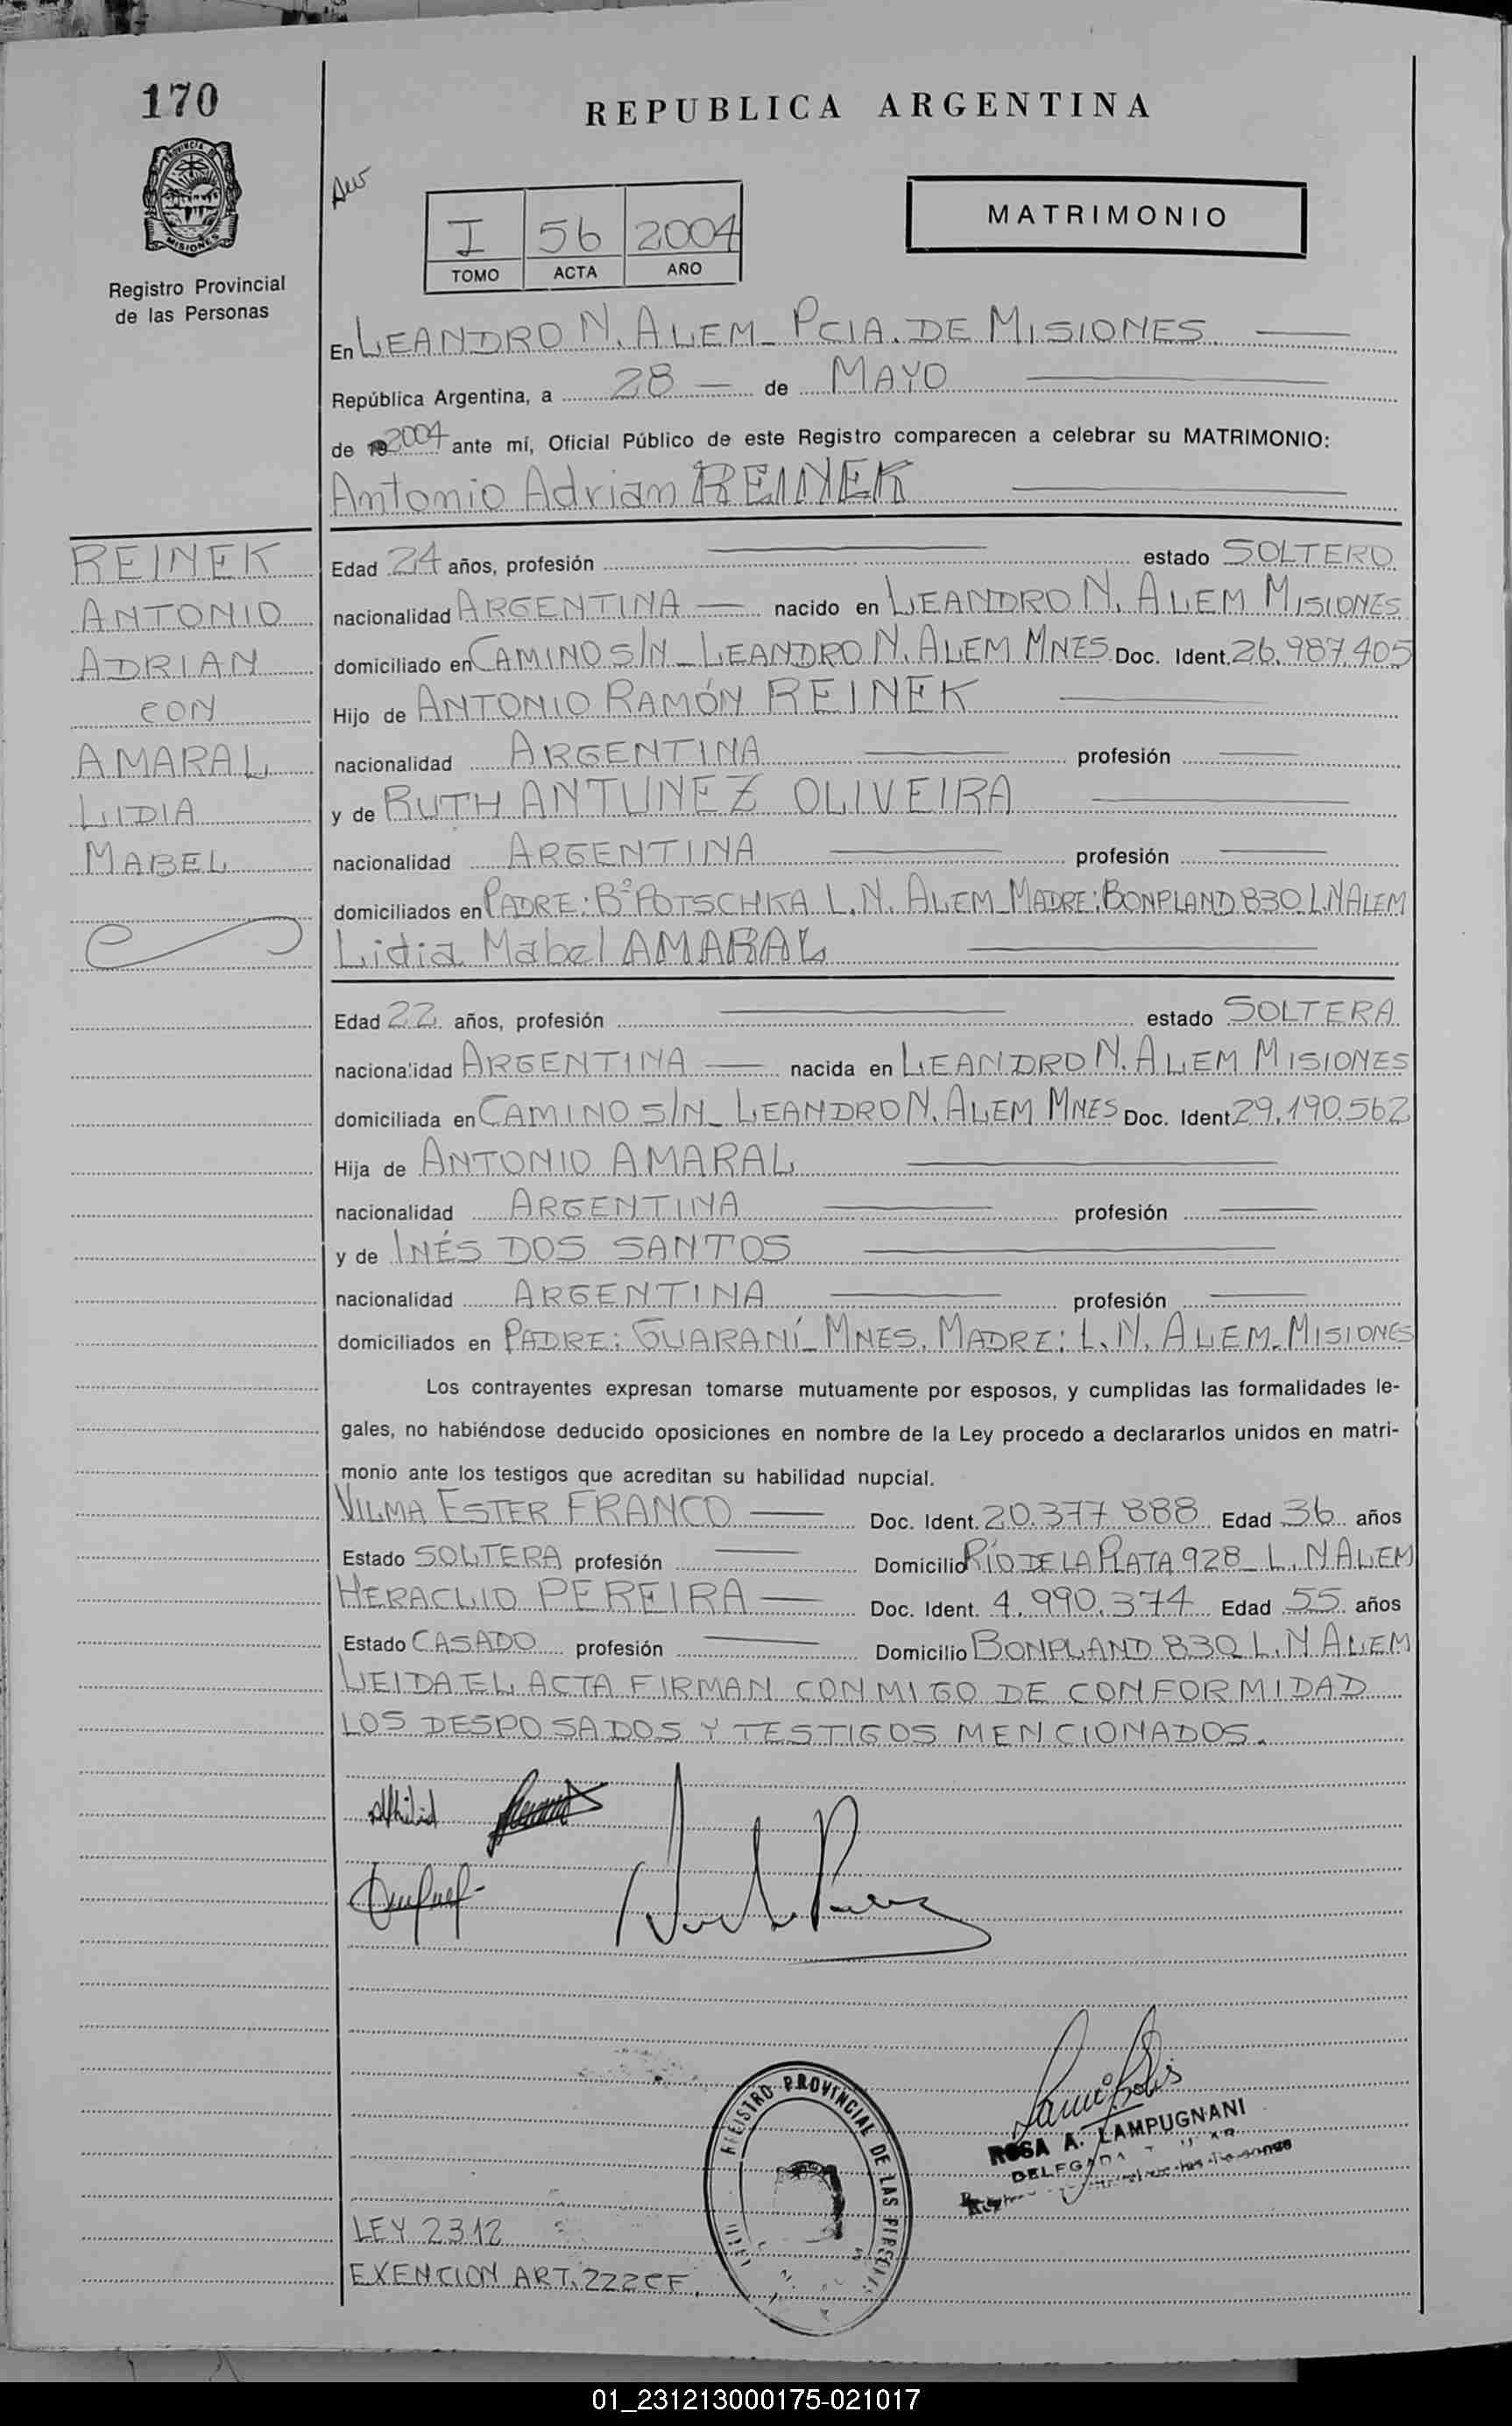 170
REPUBLICA ARGENTINA
PROVINCIA D
MISIONES
Registro Provincial
de las Personas
I 56 2004
TOMO ACTA AÑO
MATRIMONIO
En LEANDRO N. ALEM - PCIA. DE MISIONES.
República Argentina, a 28 de MAYO
de 19 2004 ante mí, Oficial Público de este Registro comparecen a celebrar su MATRIMONIO:
Antonio Adrian REINEK
REINEK
ANTONIO
ADRIAN
CON
AMARAL
LIDIA
MABEL
Edad 24 años, profesión estado SOLTERO
nacionalidad ARGENTINA nacido en LEANDRO N. ALEM MISIONES
domiciliado en CAMINO S/N - LEANDRO N. ALEM MNES Doc. Ident. 26.987.405
Hijo de ANTONIO RAMÓN REINEK
nacionalidad ARGENTINA profesión
y de RUTH ANTUNEZ OLIVEIRA
nacionalidad ARGENTINA profesión
domiciliados en PADRE: Bº POTSCHKA L.N. ALEM - MADRE: BONPLAND 830 L.N ALEM
Lidia Mabel AMARAL
Edad 22 años, profesión estado SOLTERA
nacionalidad ARGENTINA nacida en LEANDRO N. ALEM MISIONES
domiciliada en CAMINO S/N - LEANDRO N. ALEM MNES Doc. Ident. 29.190.562
Hija de ANTONIO AMARAL
nacionalidad ARGENTINA profesión
y de INÉS DOS SANTOS
nacionalidad ARGENTINA profesión
domiciliados en PADRE: GUARANÍ - MNES. MADRE: L.N. ALEM - MISIONES
Los contrayentes expresan tomarse mutuamente por esposos, y cumplidas las formalidades le-
gales, no habiéndose deducido oposiciones en nombre de la Ley procedo a declararlos unidos en matri-
monio ante los testigos que acreditan su habilidad nupcial.
VILMA ESTER FRANCO Doc. Ident. 20.377.888 Edad 36 años
Estado SOLTERA profesión Domicilio RÍO DE LA PLATA 928 - L.N ALEM
HERACLIO PEREIRA Doc. Ident. 4.990.374 Edad 55 años
Estado CASADO profesión Domicilio BONPLAND 830 L.N ALEM
LEIDA EL ACTA FIRMAN CONMIGO DE CONFORMIDAD
LOS DESPOSADOS Y TESTIGOS MENCIONADOS.
REGISTRO PROVINCIAL DE LAS
ROSA A. LAMPUGNANI
DELEGADA
LEY 2312
EXENCION ART. 222 CF.
01_231213000175-021017